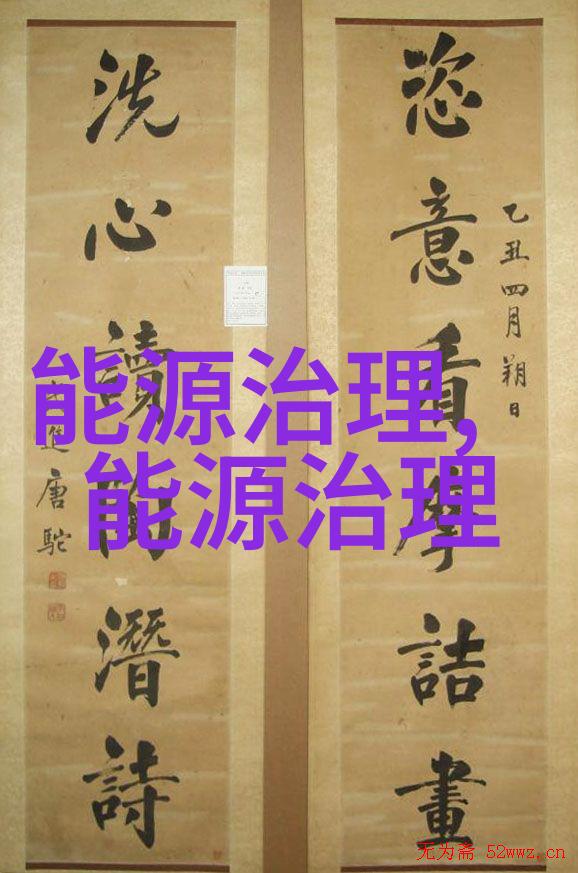 恣意看摩詰畫
乙丑四月朔日
洗心讀陶潛詩
進唐駝
能源治理,
能源治理
无为斋 52wwz.cn